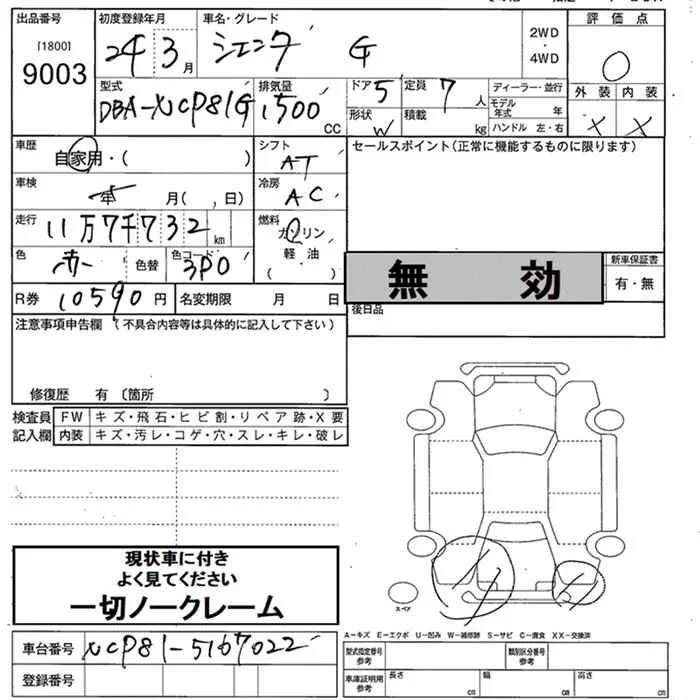 出品番号
[1800]
9003
初度登録年月
24年3月
車名・グレード
シエンタ G
2WD
・
4WD
評価点
0
外装 内装
× ×
型式
DBA-NCP81G
排気量
1500
CC
ドア
5
形状
W
定員
7人
積載
kg
ディーラー・並行
モデル年式 年
ハンドル 左・右
車歴
自家用・( )
シフト
AT
セールスポイント(正常に機能するものに限ります)
車検
年 月( , 日)
冷房
AC
走行
11万7千732km
燃料
ガソリン
軽・油
( )
色
赤
色替
色コード
3P0
無 効
新車保証書
有・無
R券 10590円
名変期限 月 日
後日品
注意事項申告欄 (不具合内容等は具体的に記入して下さい)
修復歴 有 (箇所 )
検査員
記入欄
FW キズ・飛石・ヒビ割・リペア跡・X要
内装 キズ・汚レ・コゲ・穴・スレ・キレ・破レ
現状車に付き
よく見てください
一切ノークレーム
スペア
A-キズ E-エクボ U-凹み W-補修跡 S-サビ C-腐食 XX-交換済
車台番号 NCP81-5167022
登録番号
型式指定番号
参考
類別区分番号
参考
車庫証明用
参考
長さ cm 幅 cm 高さ cm